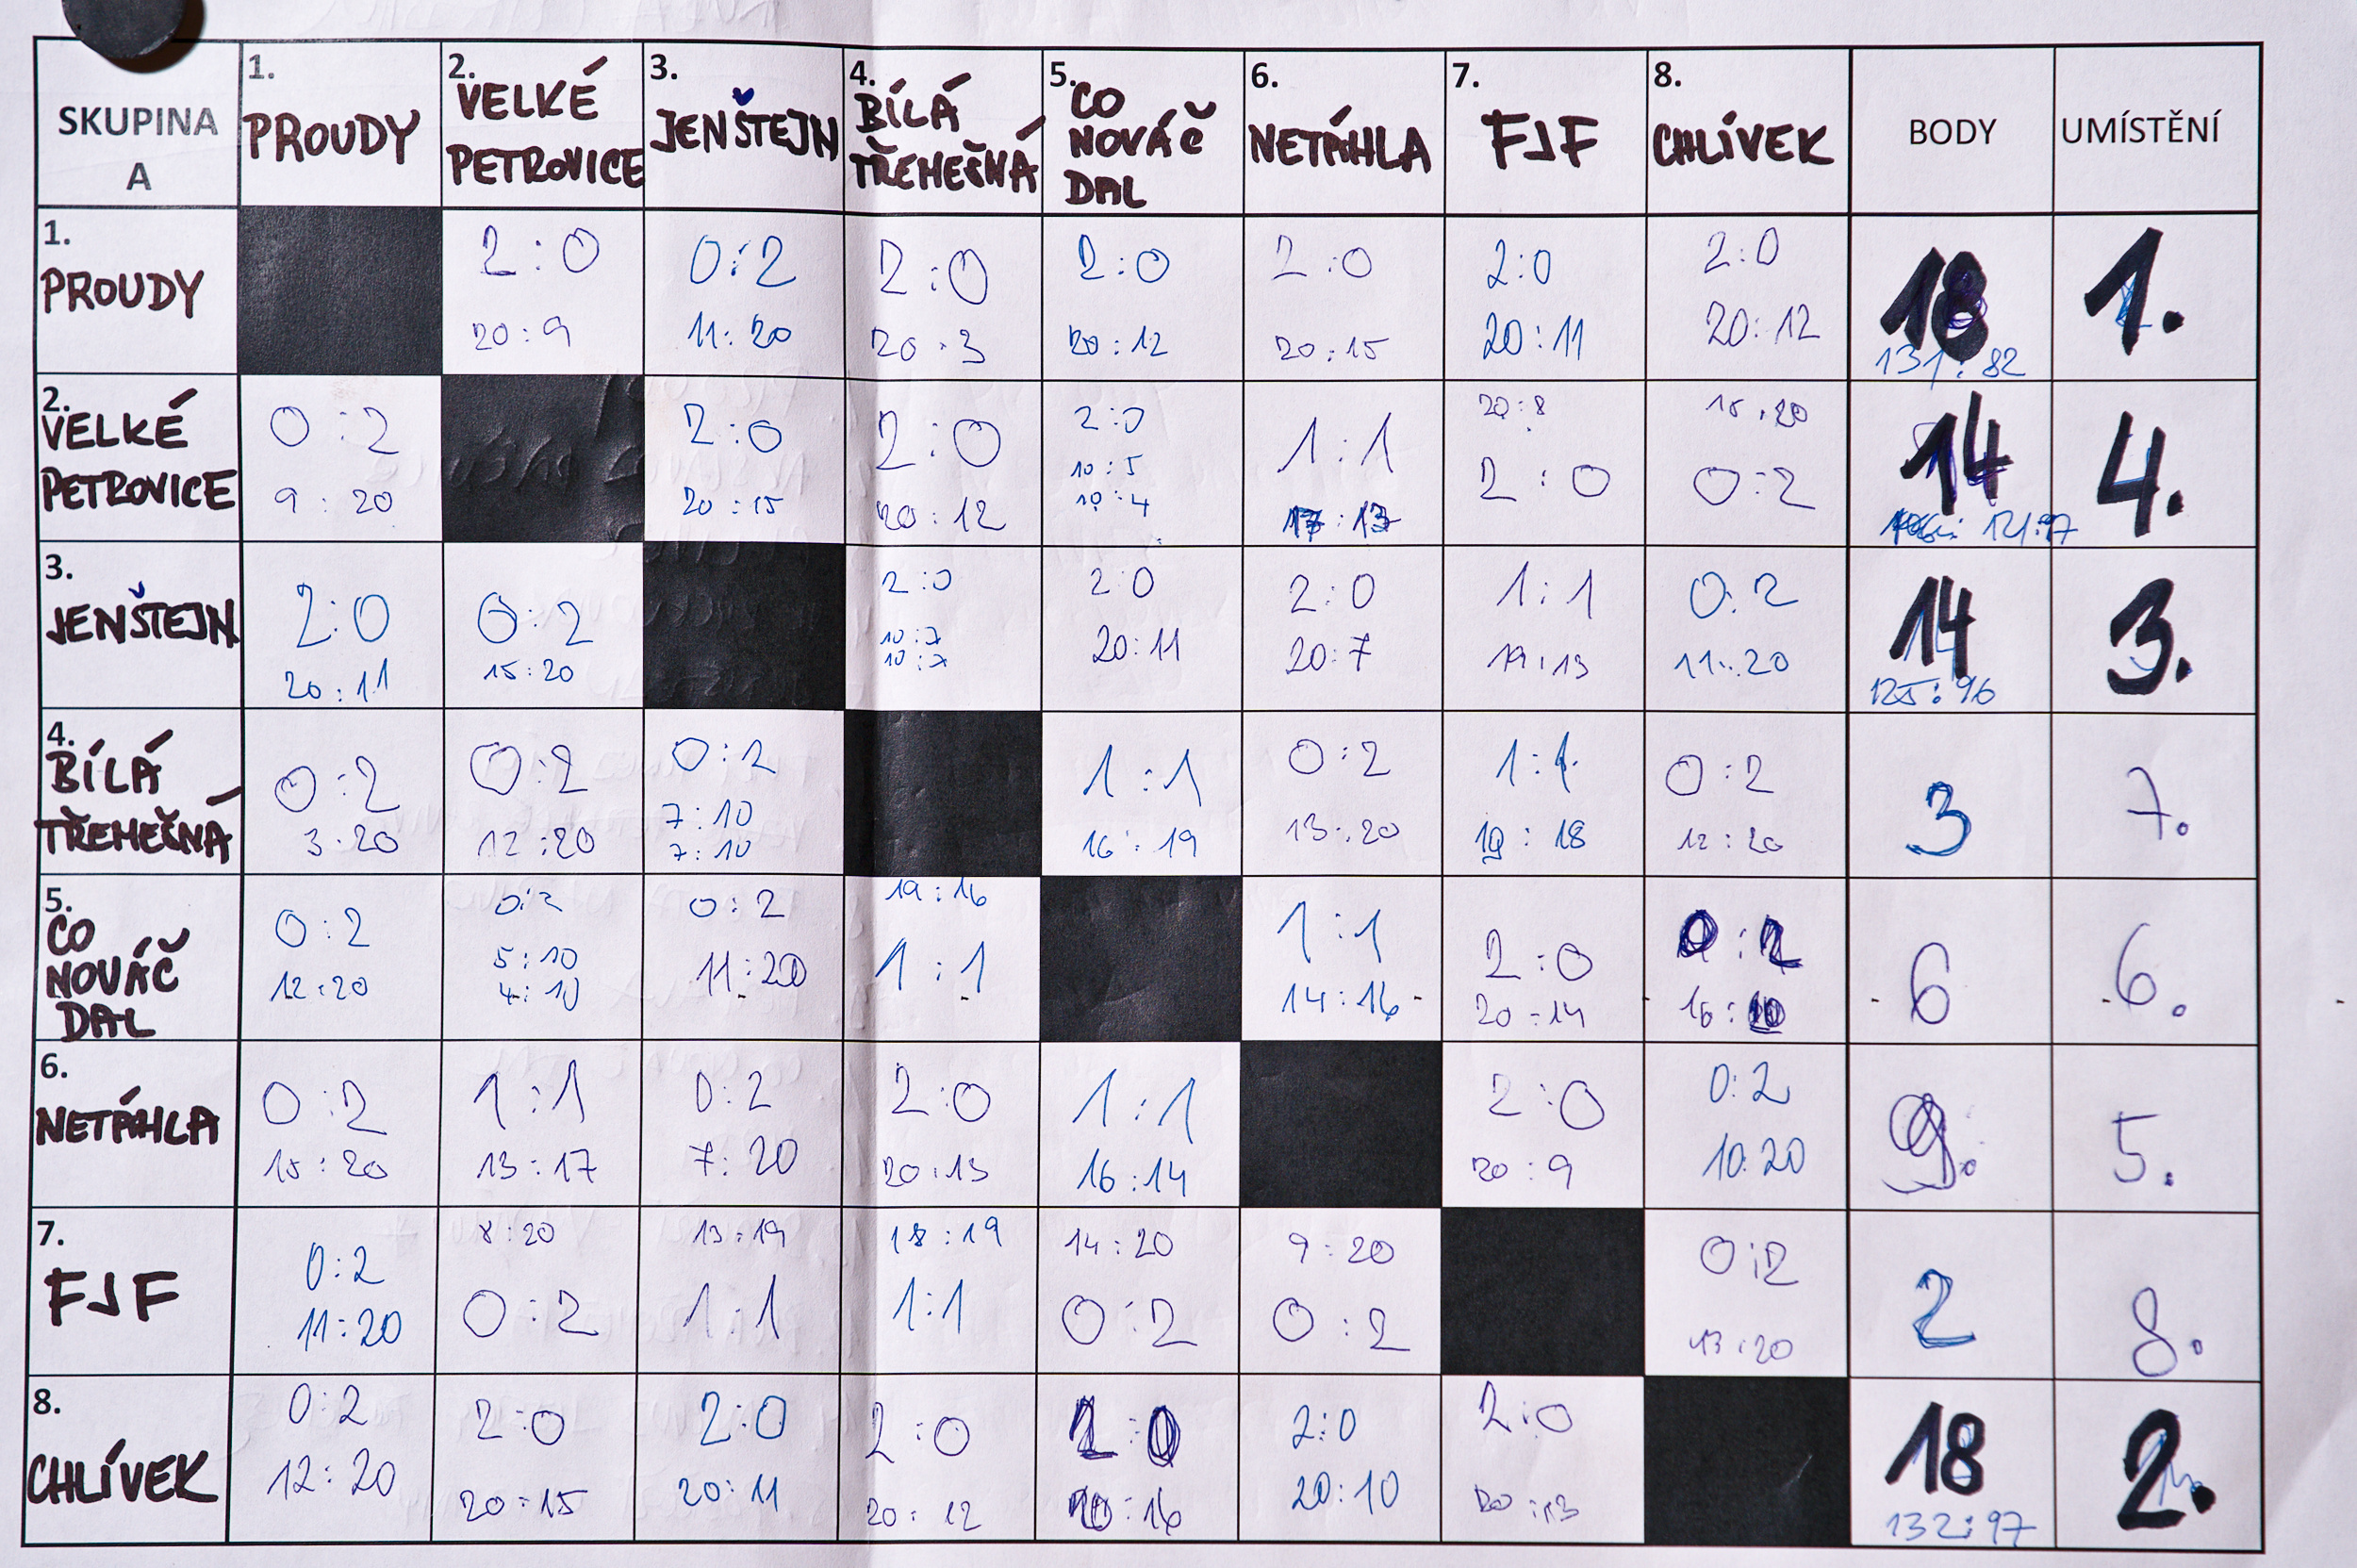 SKUPINA A
1. PROUDY
2. VELKÉ PETROVICE
3. JENŠTEJN
4. BÍLÁ TŘEMEŠNÁ
5. CO NOVÁČ DAL
6. NETÁHLA
7. FJF
8. CHLÍVEK
BODY
UMÍSTĚNÍ
1. PROUDY
2:0
20:9
0:2
11:20
2:0
20:3
2:0
20:12
2:0
20:15
2:0
20:11
2:0
20:12
18
131:82
1.
2. VELKÉ PETROVICE
0:2
9:20
2:0
20:15
2:0
20:12
2:0
10:5
10:4
1:1
17:13
20:8
2:0
15:20
0:2
14
121:97
4.
3. JENŠTEJN
2:0
20:11
0:2
15:20
2:0
10:7
10:7
2:0
20:11
2:0
20:7
1:1
19:13
0:2
11:20
14
125:96
3.
4. BÍLÁ TŘEMEŠNÁ
0:2
3:20
0:2
12:20
0:2
7:10
7:10
1:1
16:19
0:2
13:20
1:1
19:18
0:2
12:20
3
7.
5. CO NOVÁČ DAL
0:2
12:20
0:2
5:10
4:10
0:2
11:20
19:16
1:1
1:1
14:16
2:0
20:14
0:2
16:
6
6.
6. NETÁHLA
0:2
15:20
1:1
13:17
0:2
7:20
2:0
20:13
1:1
16:14
2:0
20:9
0:2
10:20
9.
5.
7. FJF
0:2
11:20
8:20
0:2
13:19
1:1
18:19
1:1
14:20
0:2
9:20
0:2
0:2
13:20
2
8.
8. CHLÍVEK
0:2
12:20
2:0
20:15
2:0
20:11
2:0
20:12
2:0
20:16
2:0
20:10
2:0
20:13
18
132:97
2.